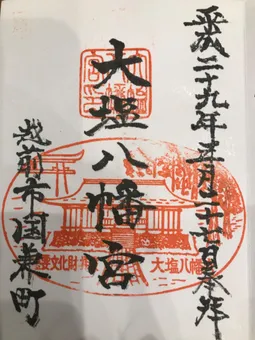 平成二十九年五月二十七日奉拝
大塩八幡宮
越前市国兼町
重要文化財
大塩八幡